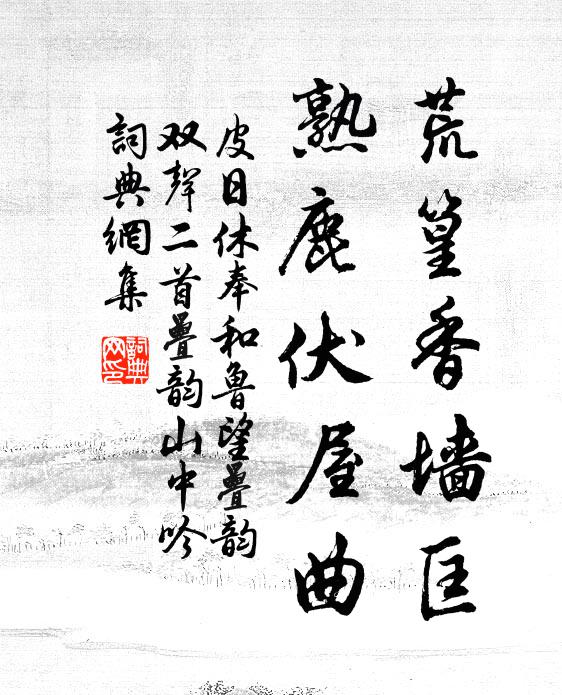 荒篁香墙匡
熟鹿伏屋曲
皮日休奉和鲁望叠韵
双聲二首叠韵山中吟
詞典網集
詞典
网印